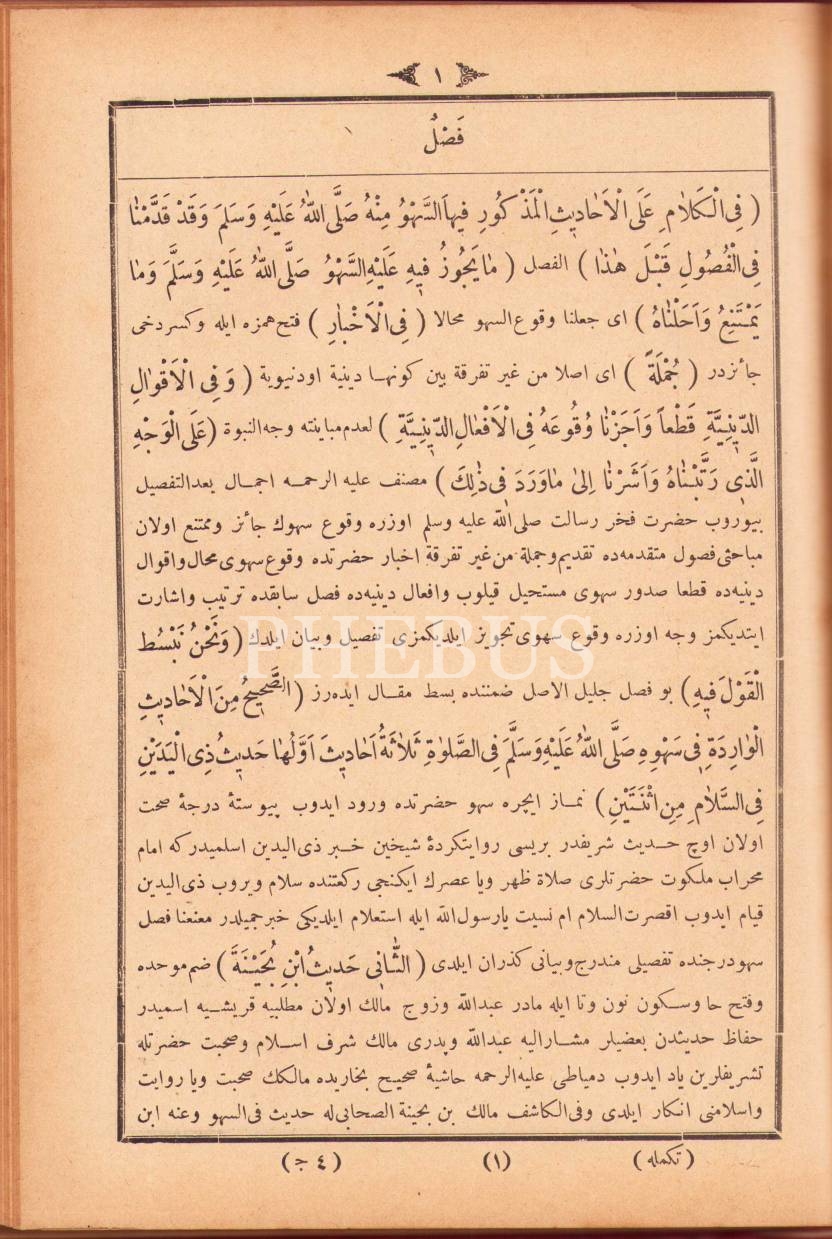 ١
فَصْلٌ
( فِى الْكَلَامِ عَلَى الْاَحَادِيثِ الْمَذْكُورِ فِيهَا السَّهْوُ مِنْهُ صَلَّى اللّٰهُ عَلَيْهِ وَسَلَّمَ وَقَدْ قَدَّمْنَا
فِى الْفُصُولِ قَبْلَ هٰذَا ) الفصل ( مَا يَجُوزُ فِيهِ عَلَيْهِ السَّهْوُ صَلَّى اللّٰهُ عَلَيْهِ وَسَلَّمَ وَمَا
يَمْتَنِعُ وَاَحَلْنَاهُ ) اى جعلنا وقوع السهو محالا ( فِى الْاَخْبَارِ ) فتح همزه ايله وكسردخى
جائزدر ( جُمْلَةً ) اى اصلا من غير تفرقة بين كونهـا دينية اودنيوية ( وَفِى الْاَقْوَالِ
الدِّينِيَّةِ قَطْعاً وَاَجَزْنَا وُقُوعَهُ فِى الْاَفْعَالِ الدِّينِيَّةِ ) لعدم مباينته وجه النبوة ( عَلَى الْوَجْهِ
الَّذِى رَتَّبْنَاهُ وَاَشَرْنَا اِلىٰ مَاوَرَدَ فِى ذٰلِكَ ) مصنف عليه الرحمـه اجمـال بعدالتفصيل
بيوروب حضرت فخر رسالت صلى اللّه عليه وسلم اوزره وقوع سهوك جائز وممتنع اولان
مباحثى فصول متقدمه‌ده تقديم وجملة من غير تفرقة اخبار حضرتده وقوع سهوى محال واقوال
دينيه‌ده قطعا صدور سهوى مستحيل قيلوب وافعال دينيه‌ده فصل سابقده ترتيب واشارت
ايتديكمز وجه اوزره وقوع سهوى تجويز ايلديكمزى تفصيل وبيان ايلدك ( وَنَحْنُ نَبْسُط
الْقَوْلَ فِيهِ ) بو فصل جليل الاصل ضمننده بسط مقـال ايده‌رز ( الصَّحِيحُ مِنَ الْاَحَادِيثِ
الْوَارِدَةِ فِى سَهْوِهِ صَلَّى اللّٰهُ عَلَيْهِ وَسَلَّمَ فِى الصَّلٰوةِ ثَلَاثَةُ اَحَادِيثَ اَوَّلُهَا حَدِيثُ ذِى الْيَدَيْنِ
فِى السَّلَامِ مِنِ اثْنَتَيْنِ ) نمـاز ايچره سهو حضرتده ورود ايدوب پيوستۀ درجۀ صحت
اولان اوچ حـديث شريفدر بريسى روايتكردۀ شيخين خـبر ذى اليدين اسلميدركه امام
محراب ملكوت حضرتلرى صلاة ظهر ويا عصرك ايكنجى ركعتنده سلام ويروب ذى اليدين
قيام ايدوب اقصرت السلام ام نسيت يارسول اللّه ايله استعلام ايلديكى خبر جميلدر معنعنا فصل
سهودرجنده تفصيلى مندرج وبيانى كذران ايلدى ( الثَّانِى حَدِيثُ ابْنِ بُحَيْنَةَ ) ضم موحده
وفتح حا وسـكون نون وتا ايله مادر عبداللّه وزوج مالك اولان مطلبيه قريشـيه اسميدر
حفاظ حديثدن بعضيلر مشـاراليه عبداللّه وپدرى مالك شرف اسـلام وصحبت حضرتله
تشريفلرين ياد ايدوب دمياطى عليه الرحمه حاشيۀ صحيـح بخاريده مالكك صحبت ويا روايت
واسلامنى انكار ايلدى وفى الكاشف مالك بن بحينة الصحابى له حديث فى السهو وعنه ابن
( تكمله ) (١) ( ٤ ج )
PHEBUS